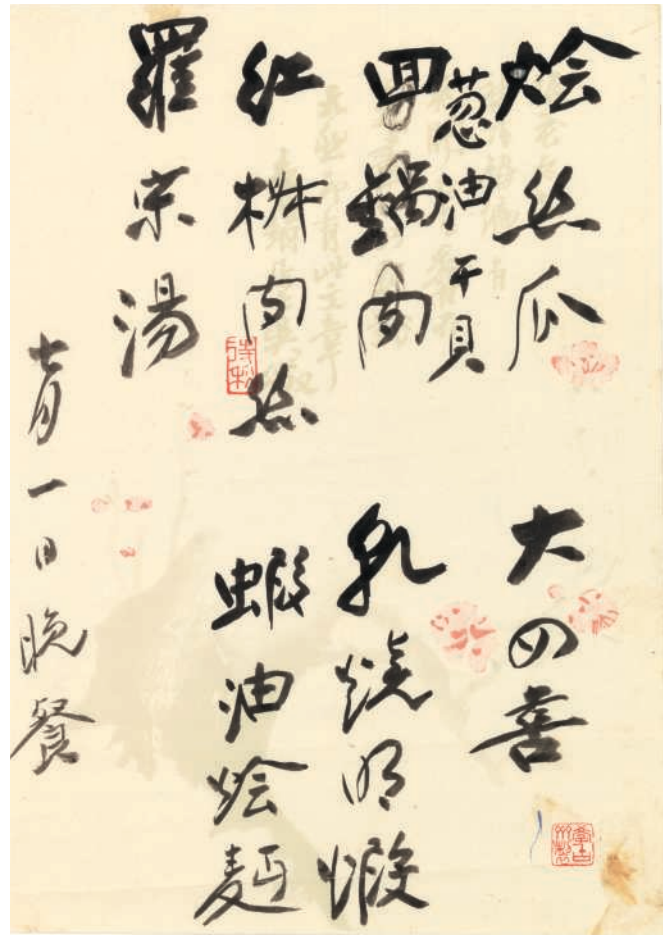 烩絲瓜
葱油干貝
回鍋肉
紅椒肉絲
羅宋湯
大四喜
乳燒明蝦
蝦油烩麵
七月一日晚餐